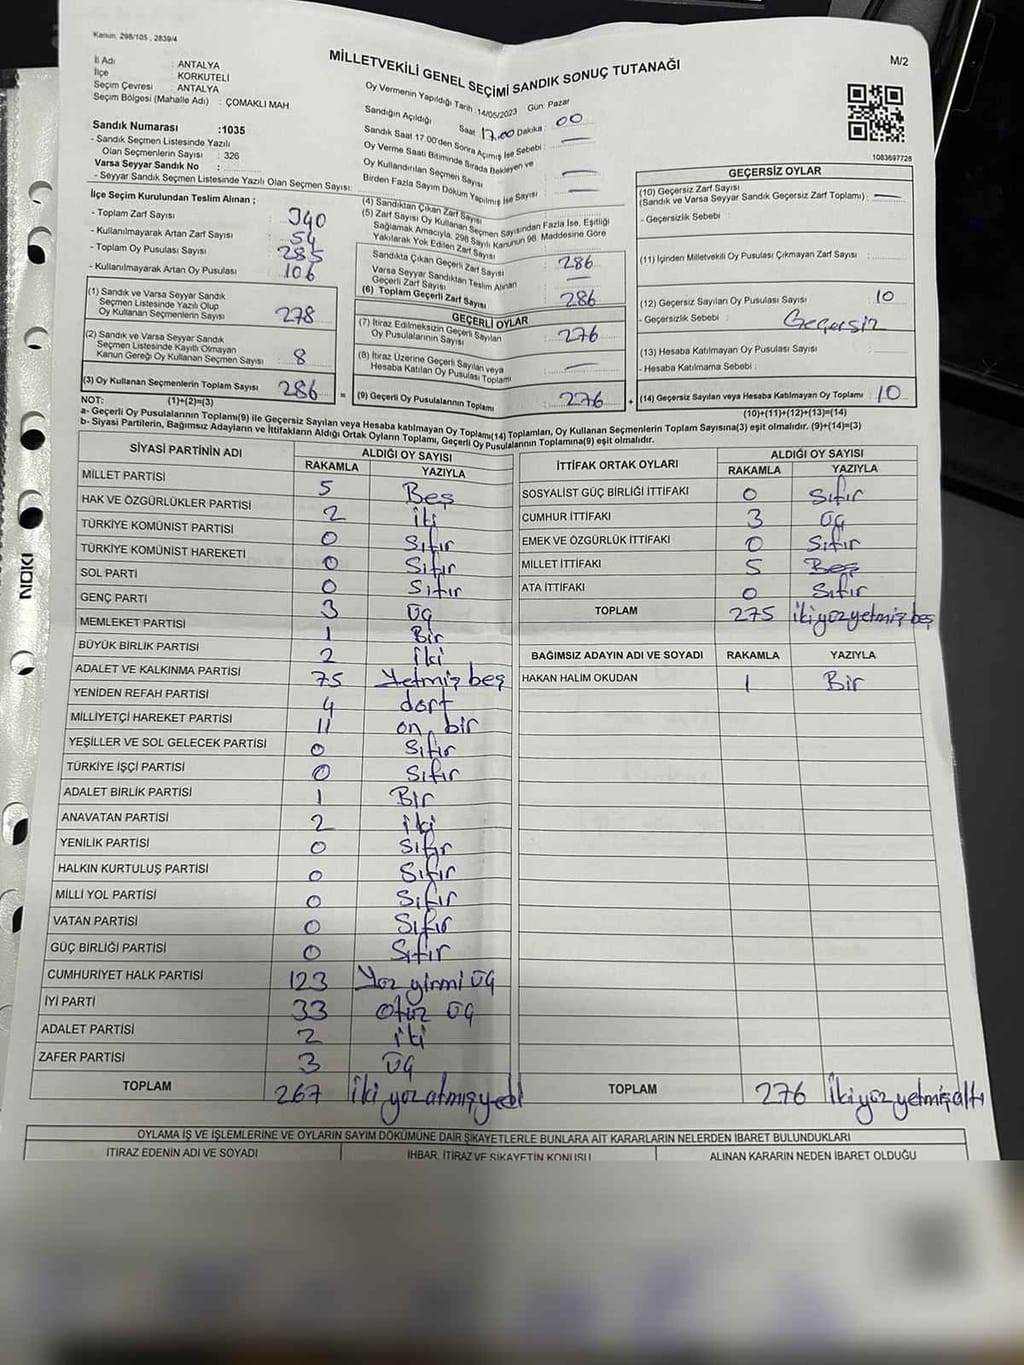 Kanun: 298/105 , 2839/4
MİLLETVEKİLİ GENEL SEÇİMİ SANDIK SONUÇ TUTANAĞI
M/2
İl Adı : ANTALYA
İlçe : KORKUTELİ
Seçim Çevresi : ANTALYA
Seçim Bölgesi (Mahalle Adı) : ÇOMAKLI MAH.
Sandık Numarası :1035
- Sandık Seçmen Listesinde Yazılı
Olan Seçmenlerin Sayısı : 326
Varsa Seyyar Sandık No :
- Seyyar Sandık Seçmen Listesinde Yazılı Olan Seçmen Sayısı:
Oy Vermenin Yapıldığı Tarih :14/05/2023 Gün: Pazar
Sandığın Açıldığı Saat 17.00 Dakika : 00
Sandık Saat 17.00'den Sonra Açımış İse Sebebi : —
Oy Verme Saati Bitiminde Sırada Bekleyen ve
Oy Kullandırılan Seçmen Sayısı : —
Birden Fazla Sayım Döküm Yapılmış İse Sayısı : —
1083697728
İlçe Seçim Kurulundan Teslim Alınan ;
- Toplam Zarf Sayısı : 340
- Kullanılmayarak Artan Zarf Sayısı : 54
- Toplam Oy Pusulası Sayısı : 285
- Kullanılmayarak Artan Oy Pusulası : 106
(1) Sandık ve Varsa Seyyar Sandık
Seçmen Listesinde Yazılı Olup
Oy Kullanan Seçmenlerin Sayısı : 278
(2) Sandık ve Varsa Seyyar Sandık
Seçmen Listesinde Kayıtlı Olmayan
Kanun Gereği Oy Kullanan Seçmen Sayısı : 8
(3) Oy Kullanan Seçmenlerin Toplam Sayısı 286 =
(4) Sandıktan Çıkan Zarf Sayısı
(5) Zarf Sayısı Oy Kullanan Seçmen Sayısından Fazla İse, Eşitliği
Sağlamak Amacıyla, 298 Sayılı Kanunun 98. Maddesine Göre
Yakılarak Yok Edilen Zarf Sayısı
Sandıkta Çıkan Geçerli Zarf Sayısı : 286
Varsa Seyyar Sandıktan Teslim Alınan
Geçerli Zarf Sayısı : —
(6) Toplam Geçerli Zarf Sayısı : 286
GEÇERLİ OYLAR
(7) İtiraz Edilmeksizin Geçerli Sayılan
Oy Pusulalarının Sayısı : 276
(8) İtiraz Üzerine Geçerli Sayılan veya
Hesaba Katılan Oy Pusulası Toplamı : —
(9) Geçerli Oy Pusulalarının Toplamı : 276 +
GEÇERSİZ OYLAR
(10) Geçersiz Zarf Sayısı
(Sandık ve Varsa Seyyar Sandık Geçersiz Zarf Toplamı) : —
- Geçersizlik Sebebi :
(11) İçinden Milletvekili Oy Pusulası Çıkmayan Zarf Sayısı :
(12) Geçersiz Sayılan Oy Pusulası Sayısı : 10
- Geçersizlik Sebebi : Geçersiz
(13) Hesaba Katılmayan Oy Pusulası Sayısı :
- Hesaba Katılmama Sebebi :
(14) Geçersiz Sayılan veya Hesaba Katılmayan Oy Toplamı : 10
NOT: (1)+(2)=(3)
(10)+(11)+(12)+(13)=(14)
a- Geçerli Oy Pusulalarının Toplamı(9) ile Geçersiz Sayılan veya Hesaba katılmayan Oy Toplamı(14) Toplamları, Oy Kullanan Seçmenlerin Toplam Sayısına(3) eşit olmalıdır. (9)+(14)=(3)
b- Siyasi Partilerin, Bağımsız Adayların ve İttifakların Aldığı Ortak Oyların Toplamı, Geçerli Oy Pusulalarının Toplamına(9) eşit olmalıdır.
SİYASİ PARTİNİN ADI ALDIĞI OY SAYISI
RAKAMLA YAZIYLA
MİLLET PARTİSİ 5 Beş
HAK VE ÖZGÜRLÜKLER PARTİSİ 2 iki
TÜRKİYE KOMÜNİST PARTİSİ 0 Sıfır
TÜRKİYE KOMÜNİST HAREKETİ 0 Sıfır
SOL PARTİ 0 Sıfır
GENÇ PARTİ 3 Üç
MEMLEKET PARTİSİ 1 Bir
BÜYÜK BİRLİK PARTİSİ 2 iki
ADALET VE KALKINMA PARTİSİ 75 Yetmiş beş
YENİDEN REFAH PARTİSİ 4 dört
MİLLİYETÇİ HAREKET PARTİSİ 11 on bir
YEŞİLLER VE SOL GELECEK PARTİSİ 0 Sıfır
TÜRKİYE İŞÇİ PARTİSİ 0 Sıfır
ADALET BİRLİK PARTİSİ 1 Bir
ANAVATAN PARTİSİ 2 iki
YENİLİK PARTİSİ 0 Sıfır
HALKIN KURTULUŞ PARTİSİ 0 Sıfır
MİLLİ YOL PARTİSİ 0 Sıfır
VATAN PARTİSİ 0 Sıfır
GÜÇ BİRLİĞİ PARTİSİ 0 Sıfır
CUMHURİYET HALK PARTİSİ 123 Yüz yirmi üç
İYİ PARTİ 33 Otuz üç
ADALET PARTİSİ 2 iki
ZAFER PARTİSİ 3 üç
TOPLAM 267 İki yüz atmış yedi
İTTİFAK ORTAK OYLARI ALDIĞI OY SAYISI
RAKAMLA YAZIYLA
SOSYALİST GÜÇ BİRLİĞİ İTTİFAKI 0 Sıfır
CUMHUR İTTİFAKI 3 Üç
EMEK VE ÖZGÜRLÜK İTTİFAKI 0 Sıfır
MİLLET İTTİFAKI 5 Beş
ATA İTTİFAKI 0 Sıfır
TOPLAM 275 iki yüz yetmiş beş
BAĞIMSIZ ADAYIN ADI VE SOYADI RAKAMLA YAZIYLA
HAKAN HALİM OKUDAN 1 Bir
TOPLAM 276 İki yüz yetmiş altı
OYLAMA İŞ VE İŞLEMLERİNE VE OYLARIN SAYIM DÖKÜMÜNE DAİR ŞİKAYETLERLE BUNLARA AİT KARARLARIN NELERDEN İBARET BULUNDUKLARI
İTİRAZ EDENİN ADI VE SOYADI İHBAR, İTİRAZ VE ŞİKAYETİN KONUSU ALINAN KARARIN NEDEN İBARET OLDUĞU
NOKI